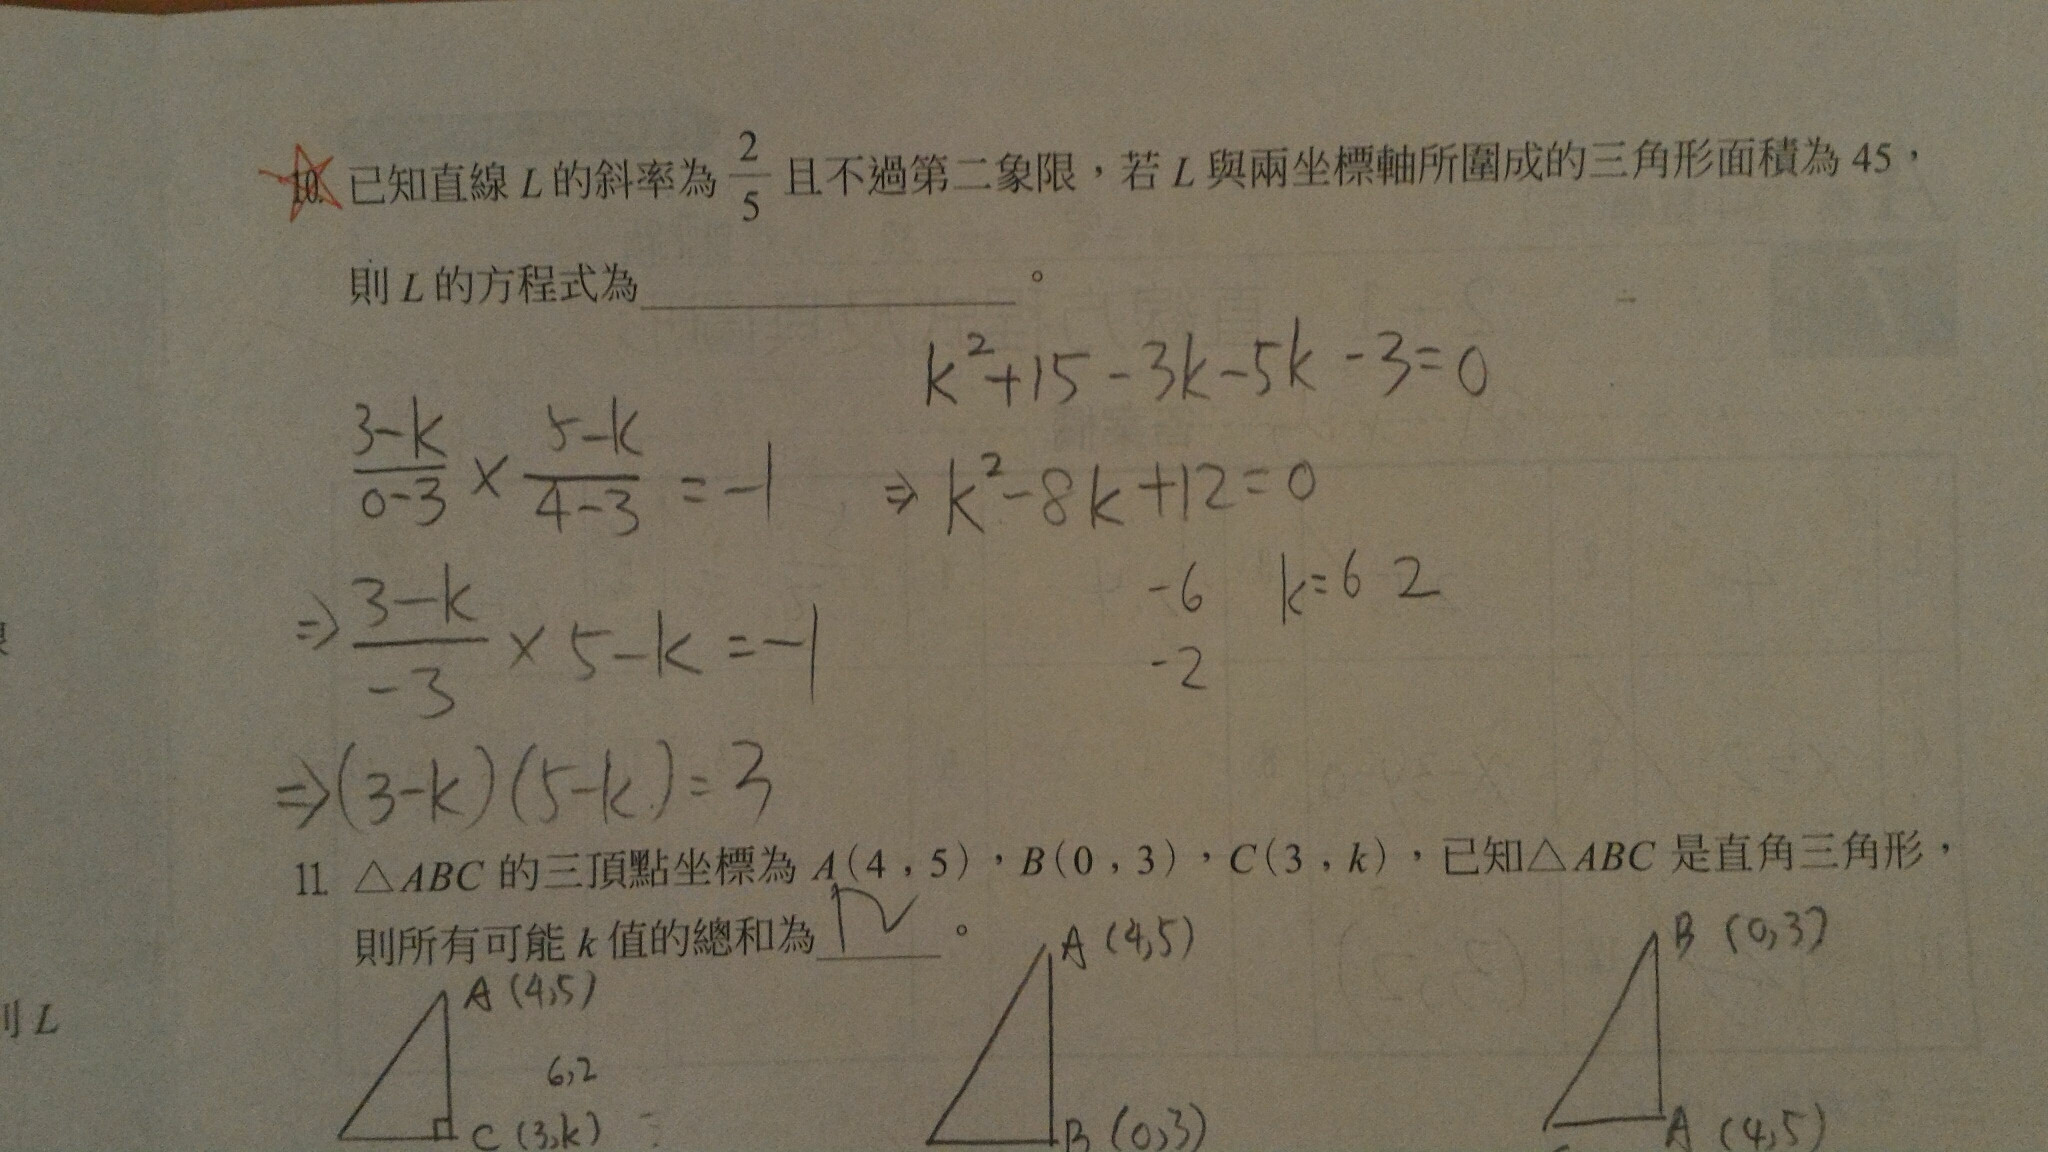 10. 已知直線 L 的斜率為 2/5 且不過第二象限，若 L 與兩坐標軸所圍成的三角形面積為 45，
則 L 的方程式為＿＿＿＿＿＿。
k²+15-3k-5k-3=0
(3-k)/(0-3) × (5-k)/(4-3) = -1
⇒ k²-8k+12=0
-6 k=6 2
-2
⇒ (3-k)/(-3) × 5-k = -1
⇒ (3-k)(5-k)=3
11. △ABC 的三頂點坐標為 A(4，5)，B(0，3)，C(3，k)，已知△ABC 是直角三角形，
則所有可能 k 值的總和為＿＿＿。
A (4,5)
6,2
C (3,k)
A (4,5)
B (0,3)
B (0,3)
A (4,5)
L